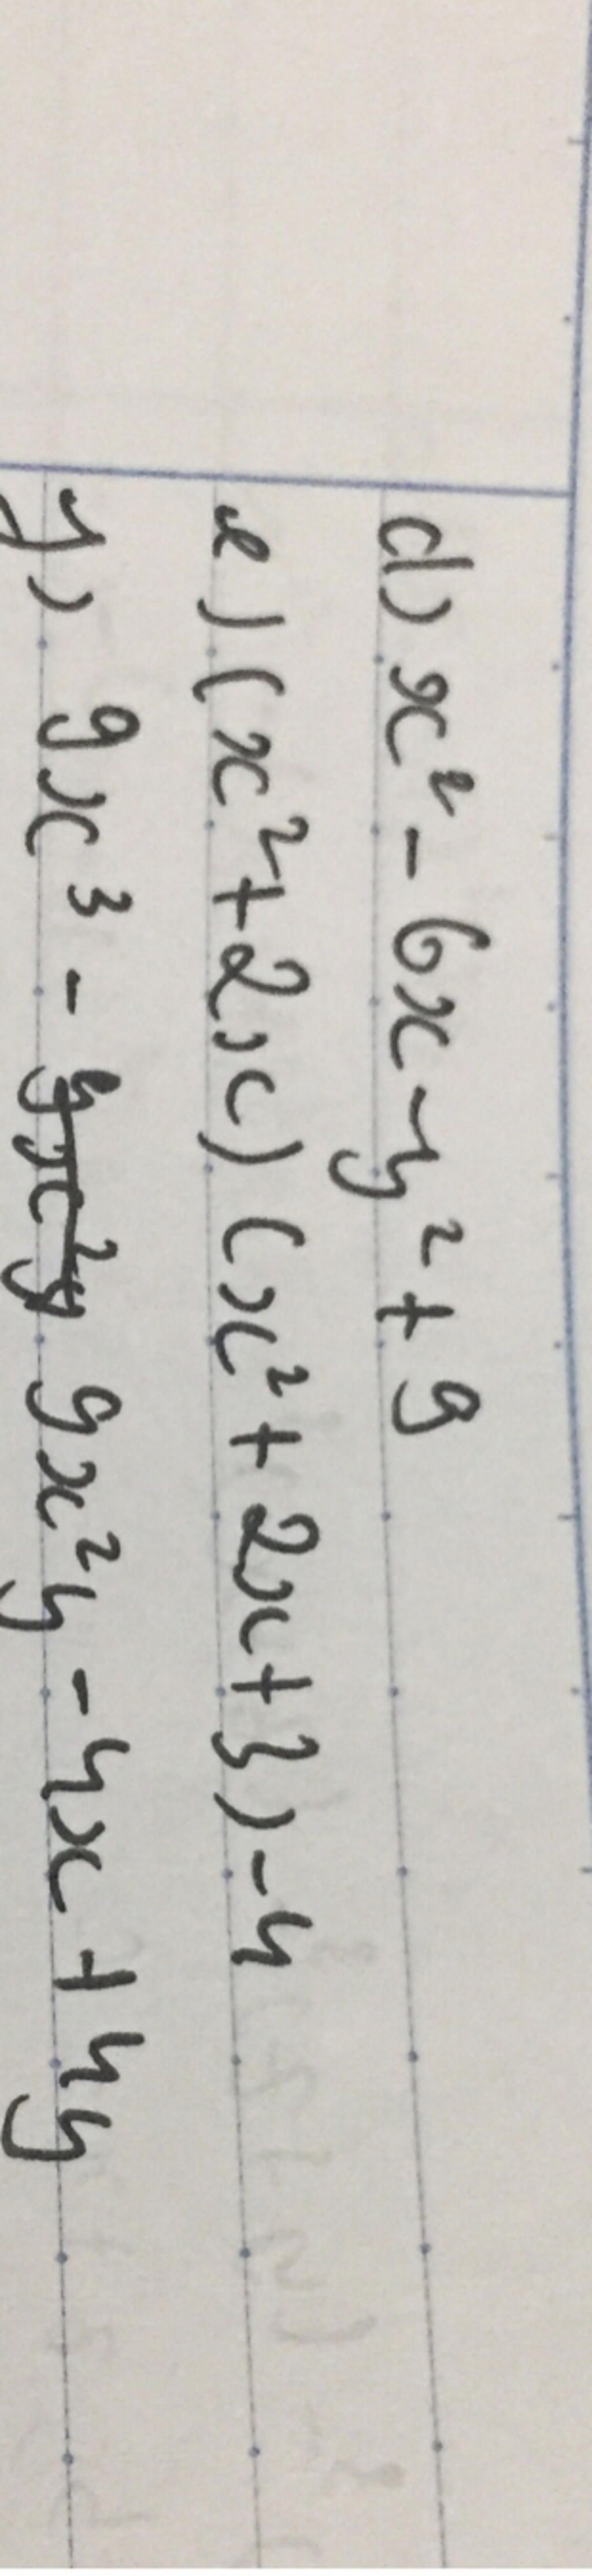 d) x² - 6x - y² + 9
e) (x² + 2x) (x² + 2x + 3) - 4
f) 9x³ - 9x²y - 4x + 4y